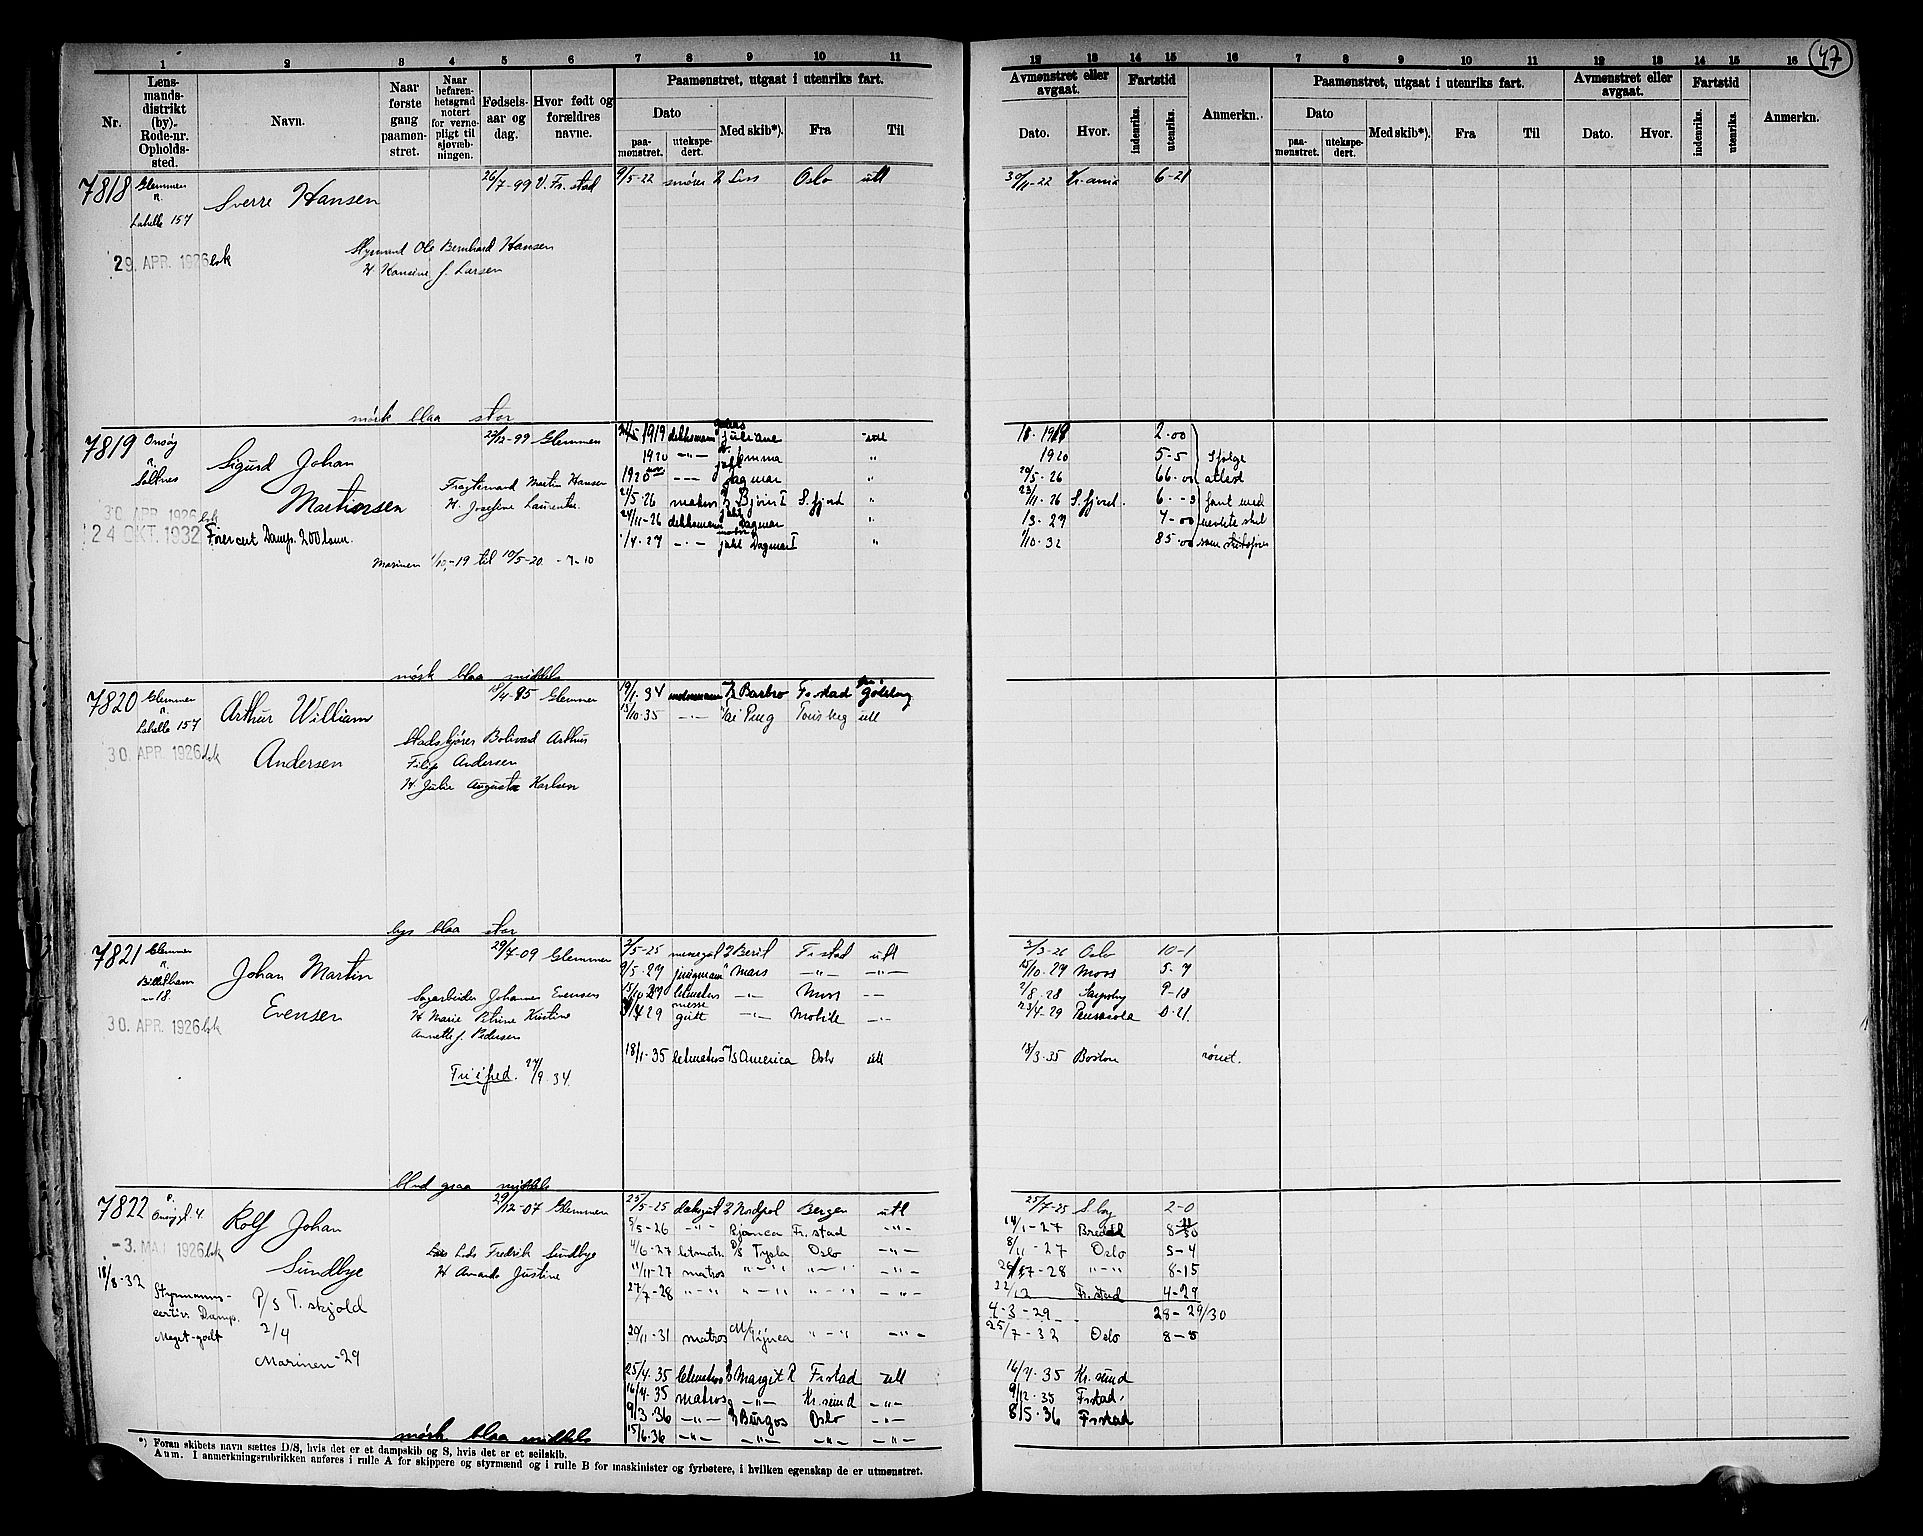 47
1 2 3 4 5 6 7 8 9 10 11
12 13 14 15 16 7 8 9 10 11 12 13 14 15 16
Nr.
Lens-
mands-
distrikt
(by).
Rode-nr.
Opholds-
sted.
Navn.
Naar
første
gang
paamøn-
stret.
Naar
befaren-
hetsgrad
notert
for verne-
pligt til
sjøvæb-
ningen.
Fødsels-
aar og
dag.
Hvor født og
forældres
navne.
Paamønstret, utgaat i utenriks fart.
Dato
paa-
mønstret.
utekspe-
dert.
Med skib*).
Fra
Til
Avmønstret eller
avgaat.
Dato.
Hvor.
Fartstid
indenriks.
utenriks.
Anmerkn.
Paamønstret, utgaat i utenriks fart.
Dato
paa-
mønstret.
utekspe-
dert.
Med skib*).
Fra
Til
Avmønstret eller
avgaat.
Dato.
Hvor.
Fartstid
indenriks.
utenriks.
Anmerkn.
7818
Glemmen
n.
Lahelle 157
29. APR. 1926
Sverre Hansen
26/7-99 V. Fr.stad
Styrmand Ole Bernhard Hansen
H. Hansine f. Larsen
9/5-22 smører Oslo utl
30/11-22 Kr.ania 6-21
mørk blaa stor
7819
Onsøy
n.
Saltnes
30. APR. 1926
24 OKT. 1932
Sigurd Johan
Martinsen
Førercert Damp. 200 tonn.
22/12-99 Glemmen
Martin Hansen
H. Josefine Laurentse
Marinen 1/10-19 til 10/5-20 -7-10
1919 dekksmand Juliane utl
1920 -"- "
1920 nov -"- Dagmar "
21/5-26 matros Bjørn I S.fjord "
24/11-26 dekksmann jakt Dagmar "
1/4-27 -"- motor jakt Dagmar I "
2-00
1920 5-5 Ifølge
20/5-26 66-00 attest
23/11-26 S.fjord. 6--3 samt med
1/3-27 4-00
1/10-32 85-00 som
mørk blaa middels
7820
Glemmen
n.
Lahelle 157
30. APR. 1926
Arthur William
Andersen
Glemmen
Stadskjører Bolivard Arthur
Filip Andersen
H. Julie Augusta Karlsen
19/1-34 Barbro Fr.stad Gøteborg
15/10-35 -"- Ping utl
lys blaa stor
7821
Glemmen
n.
18.
30. APR. 1926
Johan Martin
Evensen
29/7-09 Glemmen
Sagarbeider Johannes Evensen
H. Marie Petrine Kristine
Annette f. Pedersen
27/9-34
2/5-25 messegut Beril Fr.stad utl
9/5-27 jungmann Mars -"- -"-
15/10-27 letmatros -"- Moss -"-
messe
gutt -"- Mobile -"-
18/1-35 letmatros M/S America Oslo utl
3/3-26 Oslo 10-1
15/10-27 Moss 5-7
2/8-28 Sarpsborg 9-18
23/4-29 Pensacola 0-21
18/3-35 Boston rømt.
blond graa middels
7822
Onsøygt. 4.
-3. MAI 1926
18/8-32
Styrmanns-
certiv. Damp.
Meget-godt
Rolf Johan
Sundbye
P/S T. skjold
2/4
Marinen-29
29/12-07 Glemmen
Fredrik Sundbye
H. Amanda Justine
25/5-25 dæksgut Nordpol Bergen utl
5/5-26 -"- Bjørnvær Fr.stad -"-
4/6-27 letmatr. D/S Trysla Oslo -"-
11/11-27 matros -"- -"- -"-
27/7-28 -"- -"- -"- -"-
20/11-31 matros -"- -"-
25/4-35 letmatros Margit R Fr.stad utl
16/4-35 matros -"- Kr.sund -"-
9/3-36 -"- Burgos Oslo -"-
15/6-36 -"- -"- -"- -"-
25/7-25 S.borg 2-0
14/1-27
8/11-27 Oslo 5-4
-28 -"- 8-15
22/12 Fr.stad 4-29
4-3-29 28-29/30
25/7-32 Oslo 8-8
16/4-35 Kr.sund
9/12-35 Fr.stad
8/5-36 Fr.stad
mørk blaa middels
*) Foran skibets navn sættes D/S, hvis det er et dampskib og S, hvis det er et seilskib.
Anm. I anmerkningsrubrikken anføres i rulle A for skippere og styrmænd og i rulle B for maskinister og fyrbøtere, i hvilken egenskap de er utmønstret.